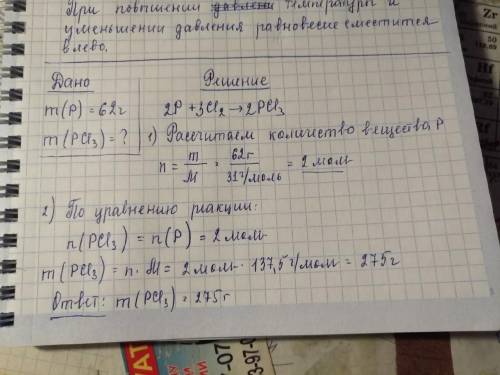 При повышении температуры и
уменьшении давления равновесие сместится
влево.
Дано
Решение
m(P) = 62г
2P + 3Cl₂ → 2PCl₃
m(PCl₃) = ?
1) Рассчитаем количество вещества P
n = m/M = 62г/31г/моль = 2 моль
2) По уравнению реакции:
n(PCl₃) = n(P) = 2 моль
m(PCl₃) = n · M = 2 моль · 137,5 г/моль = 275г
Ответ: m(PCl₃) = 275г
Zr